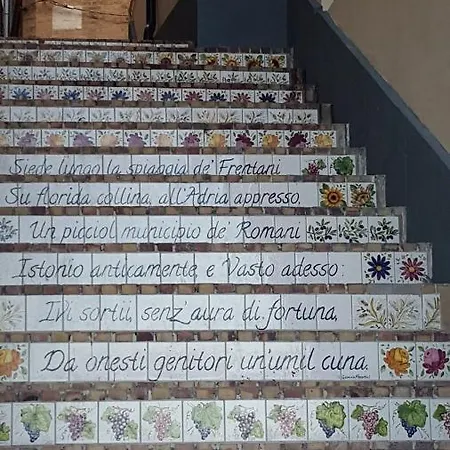 Siede lungo la spiaggia de' Frentani
Su florida collina, all'Adria appresso,
Un picciol municipio de' Romani
Istonio anticamente e Vasto adesso:
Ivi sortii, senz'aura di fortuna,
Da onesti genitori un'umil cuna.